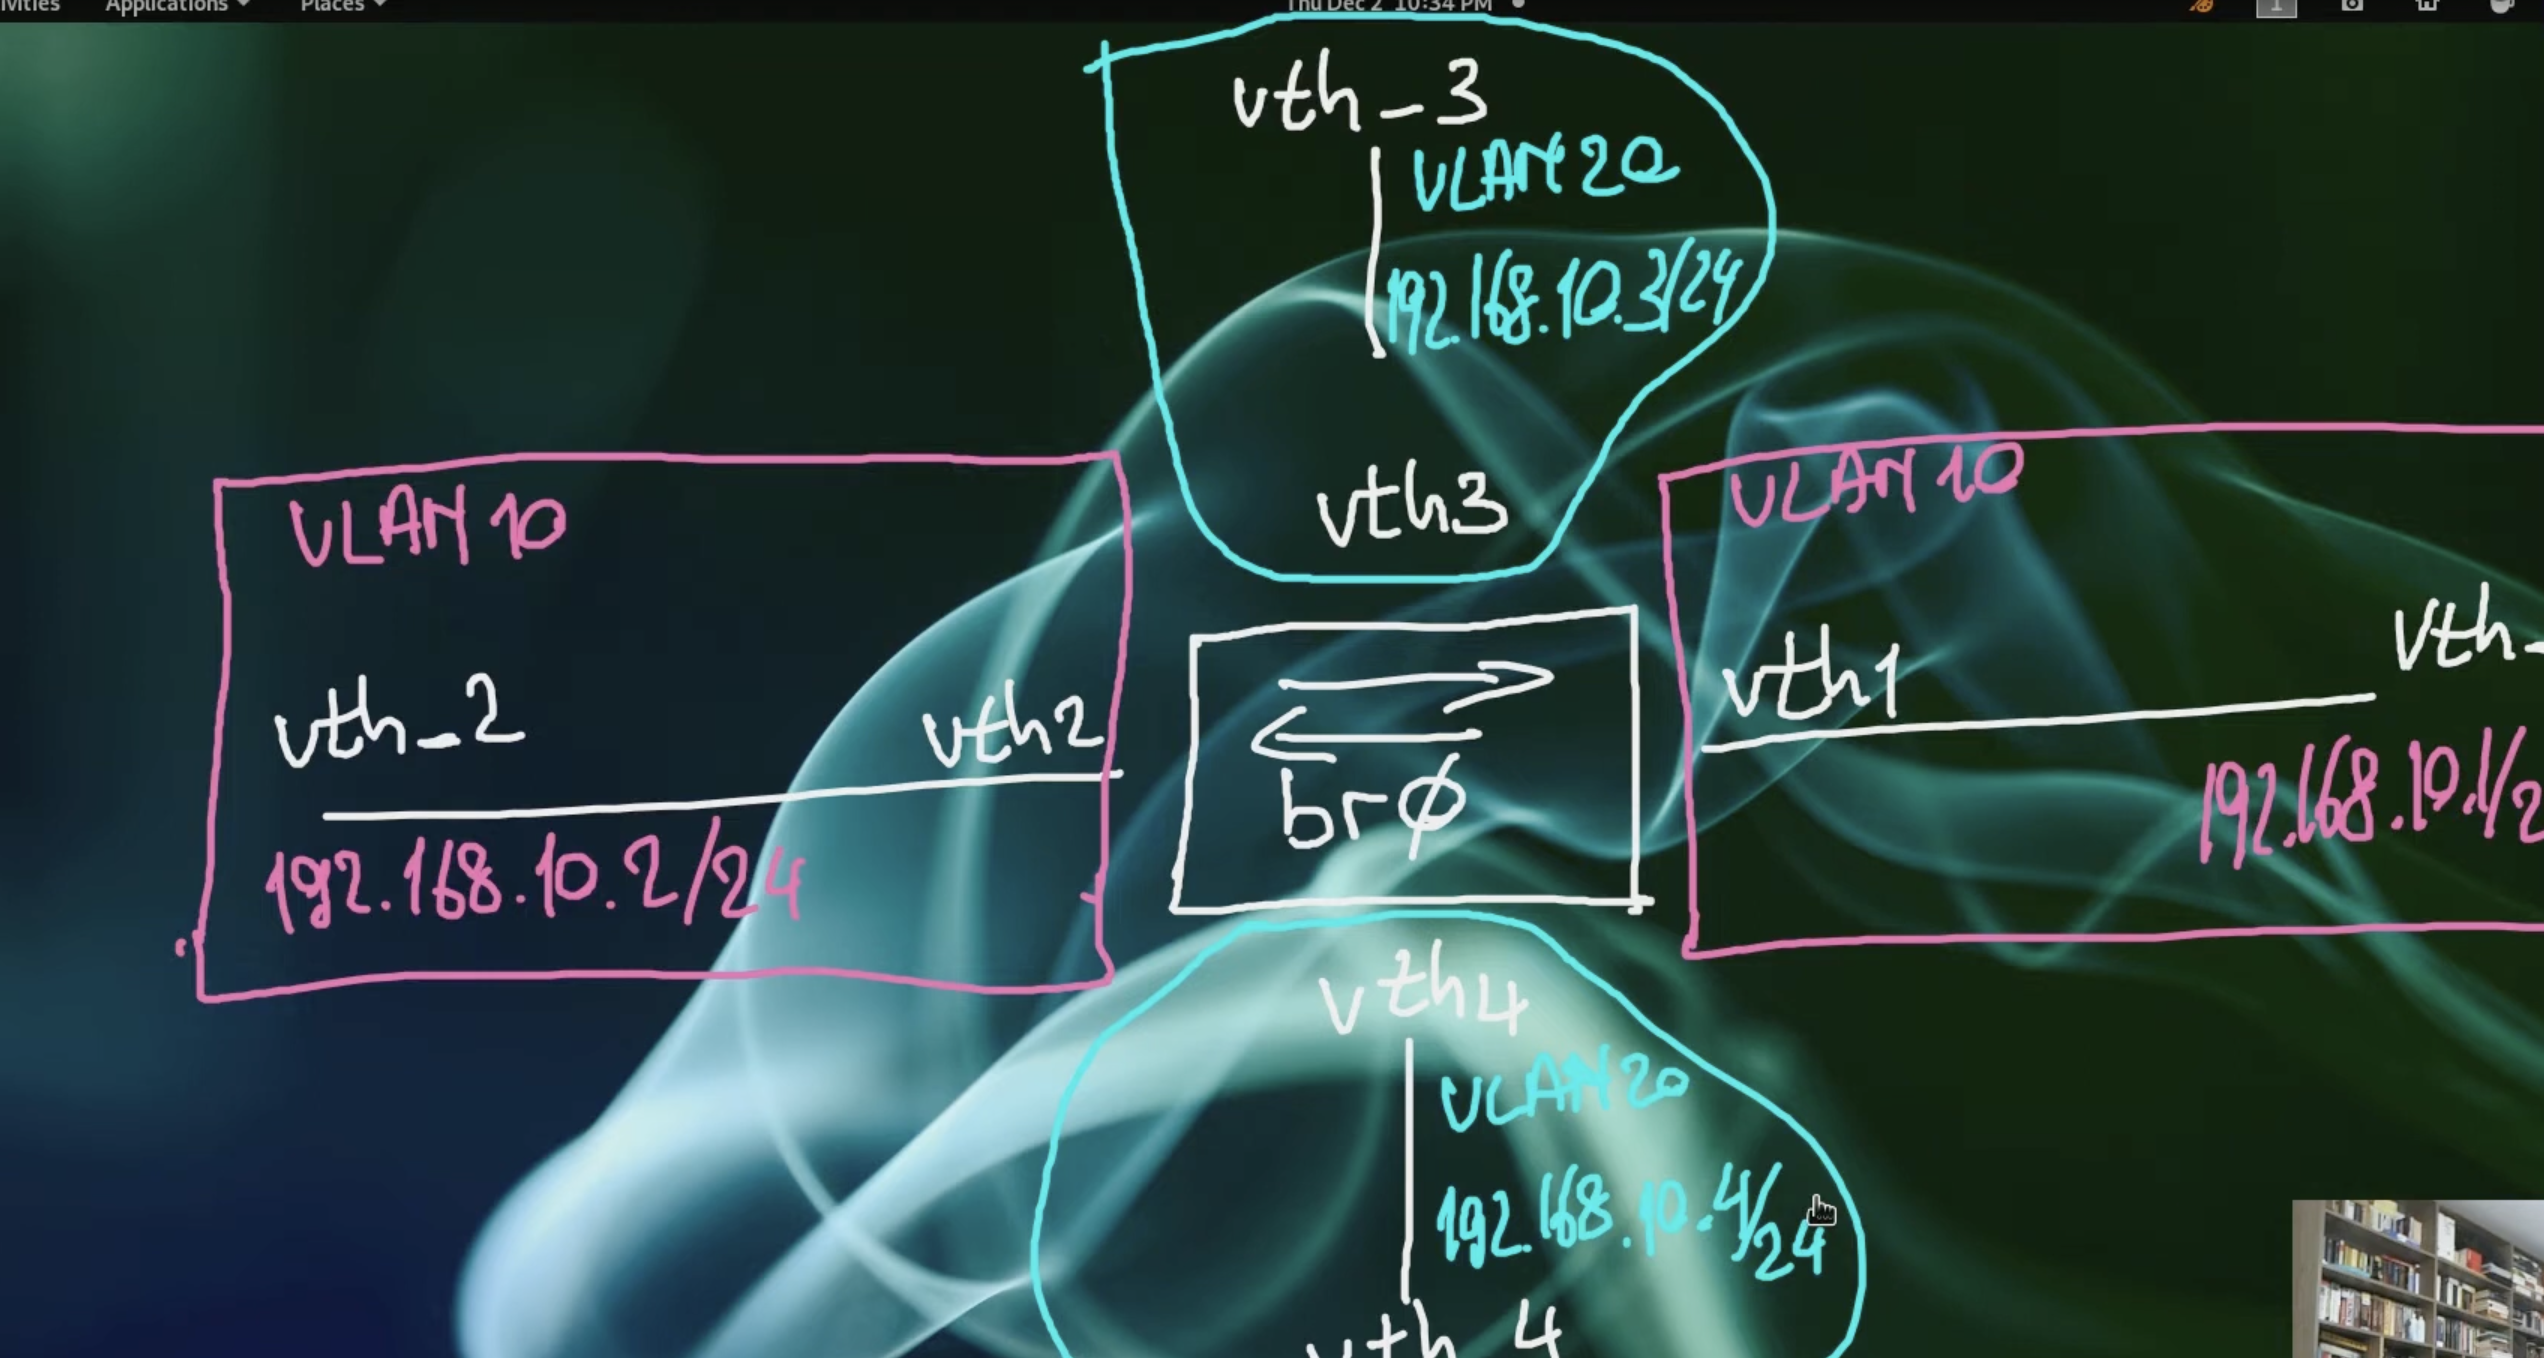 Applications Places Thu Dec 2 10:34 PM 1
vth_3
VLAN 20
192.168.10.3/24
vth3
VLAN 10
vth_2 vth2
192.168.10.2/24
br0
VLAN 10
vth1 vth_
192.168.10.1/2
vth4
VLAN 20
192.168.10.4/24
vth_4